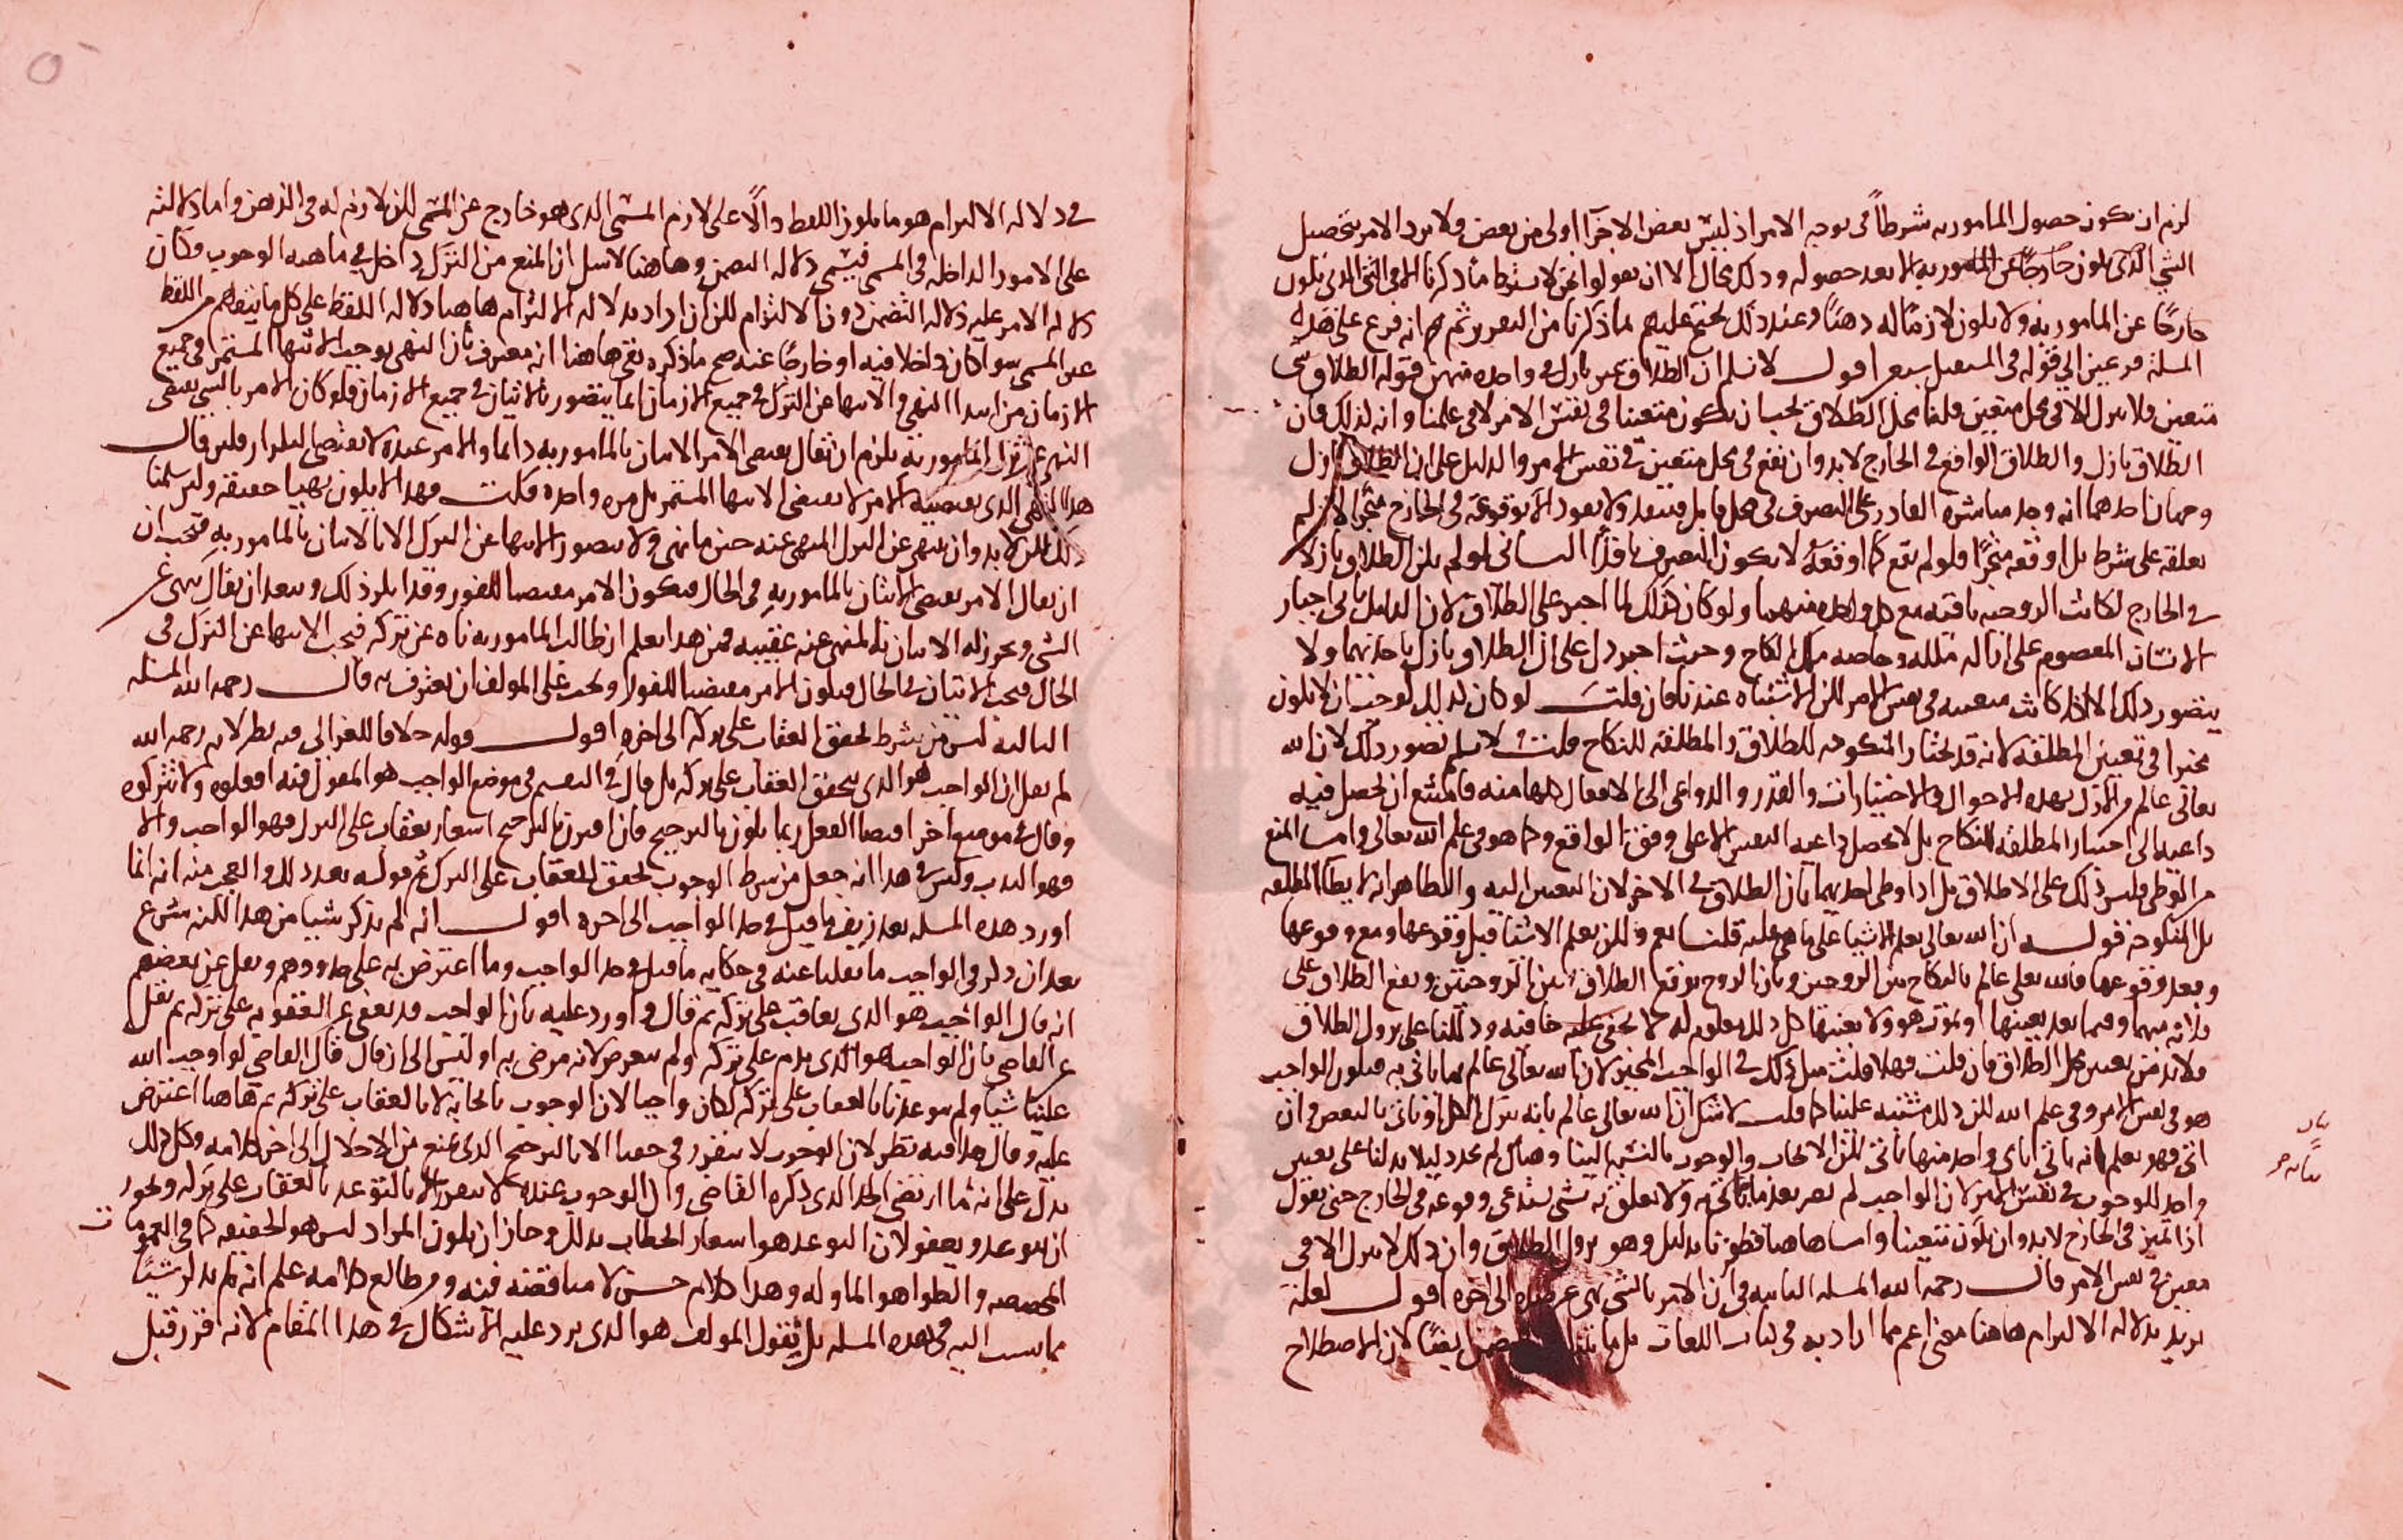 لزم ان يكون حصول المامور به شرطاً في توجه الامر اذ ليس بعض الاجزاء اولى من بعض فلا يرد الامر بتحصيل
الشي الذي يكون خارجًا عن المامور به الا بعد حصوله وذلك محال الا ان يقولوا نحن لا نشترط ما ذكرنا الا في الشي الذي يكون
خارجًا عن المامور به ولا يكون لازمًا له ذهنًا وعند ذلك نحتج عليهم بما ذكرنا من التقرير ثم انه فرع على هذه
المسلة فرعين الى قوله في المستقبل سعر اقول لا نسلم ان الطلاق غير نازل في واحدة منهن قوله الطلاق شي
متعين فلا ينزل الا في محل متعين قلنا محل الطلاق يجب ان يكون متعينا في نفس الامر لا في علمنا وانه لذلك فان
الطلاق نازل والطلاق الواقع في الخارج لا بد وان يقع في محل متعين في نفس الامر والدليل على ان الطلاق نازل
وجهان احدهما انه وجد مباشرة القادر على التصرف في محل قابل فينفذ ولا نفوذ الا بوقوعه في الخارج منجزا لان لم
يعلقه على شرط بل اوقعه منجزًا فلو لم يقع كما اوقعه لا يكون التصرف نافذًا الثاني لو لم يكن الطلاق نازلا
في الخارج لكانت الزوجية باقية مع كل واحدة منهما ولو كان كذلك لما اجبر على الطلاق لان الدليل يابى اجبار
الانسان المعصوم على ازالة ملكه وخاصة ملك النكاح وحيث اجبر دل على ان الطلاق نازل باحديهما ولا
يتصور ذلك الا اذا كانت متعينة في نفس الامر لكن الاشتباه عندنا فان قلت لو كان كذلك لوجب ان لا يكون
مخيرا في تعيين المطلقة لانه قد يختار المنكوحة للطلاق والمطلقة للنكاح قلت لا نسلم تصور ذلك لان الله
تعالى عالم في الازل بهذه الاحوال والاختيارات والقدر والدواعي الى الافعال كلها منه فامتنع ان يحصل فيه
داعية الى اختيار المطلقة للنكاح بل لا يحصل داعية التعيين الا على وفق الواقع وكما هو في علم الله تعالى واما المنع
من الوطي فليس ذلك على الاطلاق بل اذا وطي احديهما بان الطلاق في الاخرى لان التعيين اليه والظاهر انه لا يطأ المطلقة
بل المنكوحة قوله ان الله تعالى يعلم الاشيا على ما هي عليه قلنا نعم ولكن يعلم الاشيا قبل وقوعها ومع وقوعها
وبعد وقوعها فالله تعالى عالم بالنكاح بين الزوجين وبان الزوج يوقع الطلاق بين الزوجتين ويقع الطلاق على
فلانة منهما وفيما بعد يعينها او يموت هو ولا يعينها كل ذلك معلوم له لا يخفى عليه خافية ودللنا على نزول الطلاق
فلا بد من تعيين محل الطلاق فان قلت فهلا قلت مثل ذلك في الواجب المخير لان الله تعالى عالم بما ياتي به فيكون الواجب
هو في نفس الامر وفي علم الله لكن ذلك مشتبه علينا كما قلت لا شك ان الله تعالى عالم بانه يترك الكل او ياتي بالبعض وان
اتى فهو يعلم انه ياتي باي واحد منها ياتي لكن الايجاب والوجوب بالنسبة الينا وهناك لم نجد دليلا يدلنا على تعيين
واحد للوجوب في نفس الامر لان الواجب لم يصر بعد ما ياتي به ولا تعلق به شي يستدعي وقوعه في الخارج حتى نقول
اذ المميز في الخارج لا بد وان يكون متعينا واما هاهنا فظفرنا بدليل وهو نزول الطلاق وان ذلك لا ينزل الا في
معين في نفس الامر قال رحمه الله المسلة الثانية في ان الامر بالشي نهي عن ضده الى اخره اقول لعله
يريد بدلالة الالتزام هاهنا معنى اعم مما اراد به في كتاب اللغات لان الاصطلاح
في دلالة الالتزام هو ما يكون اللفظ دالًا على لازم المسمى الذي هو خارج عن المسمى لكن لازم له في الذهن واما دلالته
على الامور الداخلة في المسمى فيسمى دلالة التضمن وهاهنا لا شك ان المنع من الترك داخل في ماهية الوجوب فكان
دلالة الامر عليه دلالة التضمن دون الالتزام لكن ان اراد بدلالة الالتزام هاهنا دلالة اللفظ على كل ما يفهم من اللفظ
غير المسمى سوا كان داخلا فيه او خارجًا عنه صح ما ذكره بقي هاهنا انه معترف بان النهي يوجب الانتها المستمر في جميع
الازمان من ابتدا النهي والانتها عن الترك في جميع الازمان انما يتصور بالاتيان في جميع الازمان فلو كان الامر بالشي يقتضي
النهي عن ترك المامور به يلزم ان يقال يقتضي الامر الاتيان بالمامور به دائما والامر عنده لا يقتضي التكرار فلين قال
هذا النهي الذي يقتضيه الامر لا يقتضي الانتها المستمر بل مرة واحدة قلت فهذا لا يكون نهيا حقيقة ولين سلمنا
ذلك لكن لا بد وان ينتهي عن الترك المنهي عنه حين ما نهي ولا يتصور الانتها عن الترك الا بالاتيان بالمامور به فيجب ان
ان يقال الامر يقتضي الاتيان بالمامور به في الحال فيكون الامر مقتضيا للفور وقد انكر ذلك ويبعد ان يقال نهي عن
الشي ويجوز له الاتيان بالمنهي عنه عقيبه فمن هذا يعلم ان طالب المامور به ناه عن تركه فيجب الانتها عن الترك في
الحال فيجب الاتيان في الحال فيكون الامر مقتضيا للفور ويجب على المولف ان يعترف به قال رحمه الله المسلة
الثالثة ليس من شرط تحقق العقاب على تركه الى اخره اقول قوله خلافا للغزالي فيه نظر لانه رحمه الله
لم يقل ان الواجب هو الذي يتحقق العقاب على تركه بل قال في التقسيم في موضع الواجب هو المقول فيه افعلوه ولا تتركوه
وقال في موضع اخر اقتضا الفعل ربما يكون بالترجيح فان اقترن بالترجيح اشعار بعقاب على الترك فهو الواجب والا
فهو الندب وليس في هذا انه جعل من شرط الوجوب تحقق العقاب على الترك ثم قوله بعد ذلك والعجب منه انه انما
اورد هذه المسلة بعد زيف ما قيل في حد الواجب الى اخره اقول انه لم يذكر شيا من هذا لكنه شرع
بعد ان ذكر في الواجب ما نقلنا عنه في حكاية ما قيل في حد الواجب وما اعترض به على حدودهم ونقل عن بعضهم
انه قال الواجب هو الذي يعاقب على تركه ثم قال واورد عليه بان الواجب قد يعفى عن العقوبة على تركه ثم نقل
عن القاضي بان الواجب هو الذي يذم على تركه ولم يتعرض لانه مرضي به او ليس الى ان قال قال القاضي لو اوجب الله
علينا شيا ولم يتوعدنا بالعقاب على تركه لكان واجبا لان الوجوب بايجابه لا بالعقاب على تركه ثم هاهنا اعترض
عليه وقال هذا فيه نظر لان الوجوب لا يتقرر في حقنا الا بالترجيح الذي يمنع من الاخلال الى اخر كلامه وكل ذلك
يدل على انه ما ارتضى الحد الذي ذكره القاضي وان الوجوب عنده لا يتقرر الا بالتوعد بالعقاب على تركه ويجوز
ان يتوعد ويعفو لان التوعد هو اشعار الخطاب بذلك وجاز ان يكون المراد ليس هو الحقيقة كما في العمومات
المخصصه والظواهر الماوله وهذا كلام حسن لا مناقضة فيه ومن طالع كلامه علم انه لم يذكر شيئًا
مما نسب اليه في هذه المسلة بل نقول المولف هو الذي يرد عليه الاشكال في هذا المقام لانه قرر قبل